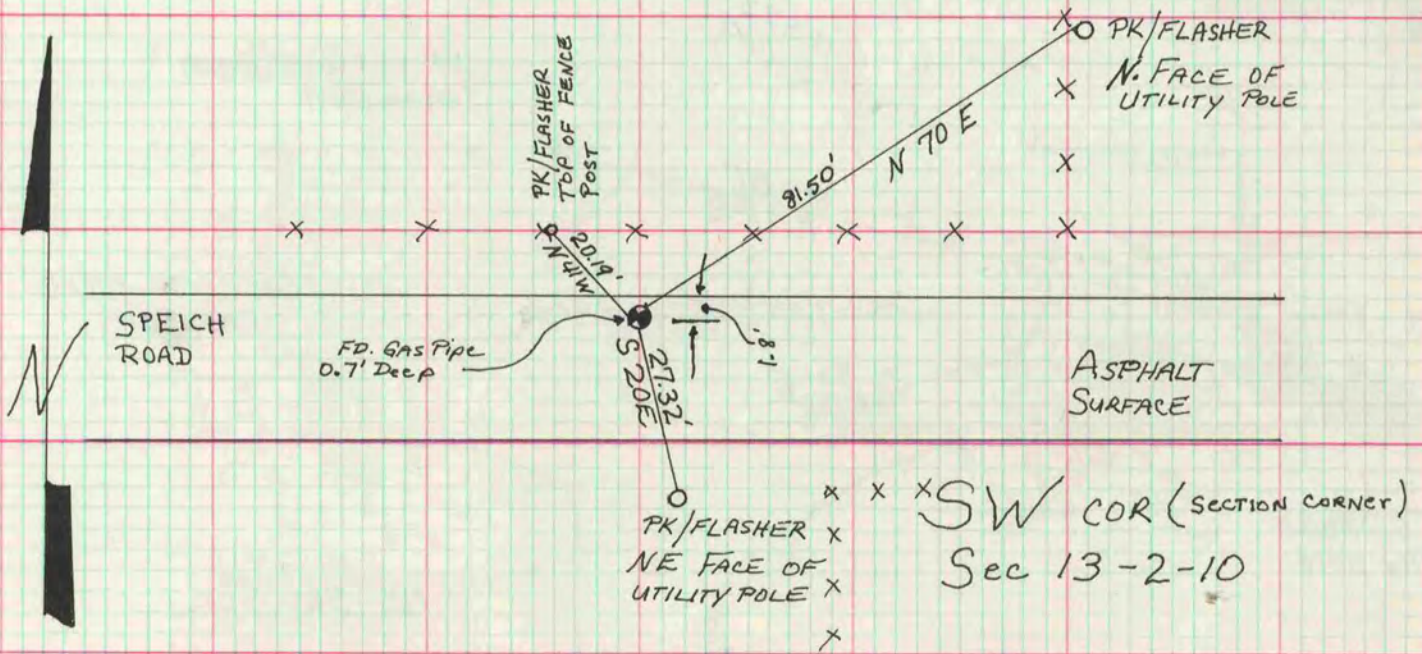 PK/FLASHER
N. FACE OF
UTILITY POLE
PK/FLASHER
TOP OF FENCE
POST
81.50'
N 70 E
20.19'
N41W
SPEICH
ROAD
FD. GAS Pipe
0.7' Deep
1.8'
27.32'
S 20E
ASPHALT
SURFACE
N
PK/FLASHER
NE FACE OF
UTILITY POLE
SW COR (SECTION CORNER)
Sec 13-2-10